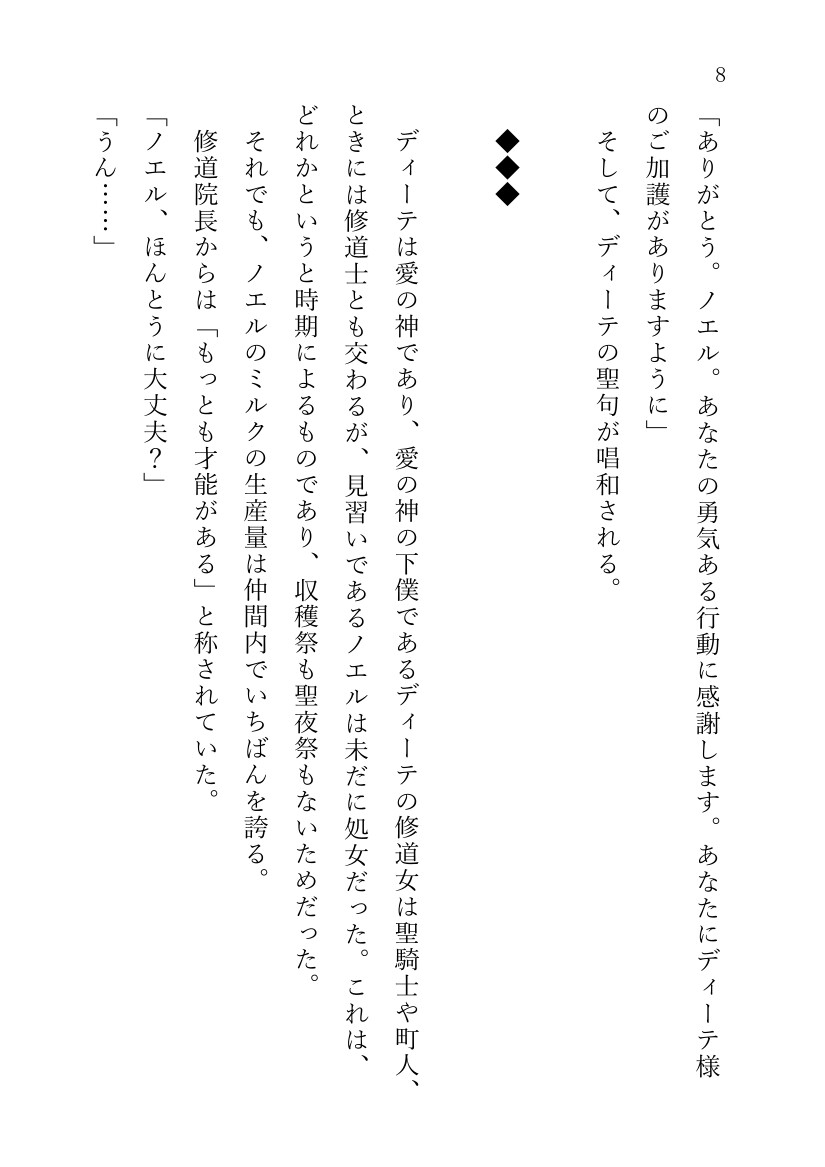 8
「ありがとう。ノエル。あなたの勇気ある行動に感謝します。あなたにディーテ様
のご加護がありますように」
そして、ディーテの聖句が唱和される。
◆◆◆
ディーテは愛の神であり、愛の神の下僕であるディーテの修道女は聖騎士や町人、
ときには修道士とも交わるが、見習いであるノエルは未だに処女だった。これは、
どれかというと時期によるものであり、収穫祭も聖夜祭もないためだった。
それでも、ノエルのミルクの生産量は仲間内でいちばんを誇る。
修道院長からは「もっとも才能がある」と称されていた。
「ノエル、ほんとうに大丈夫？」
「うん……」